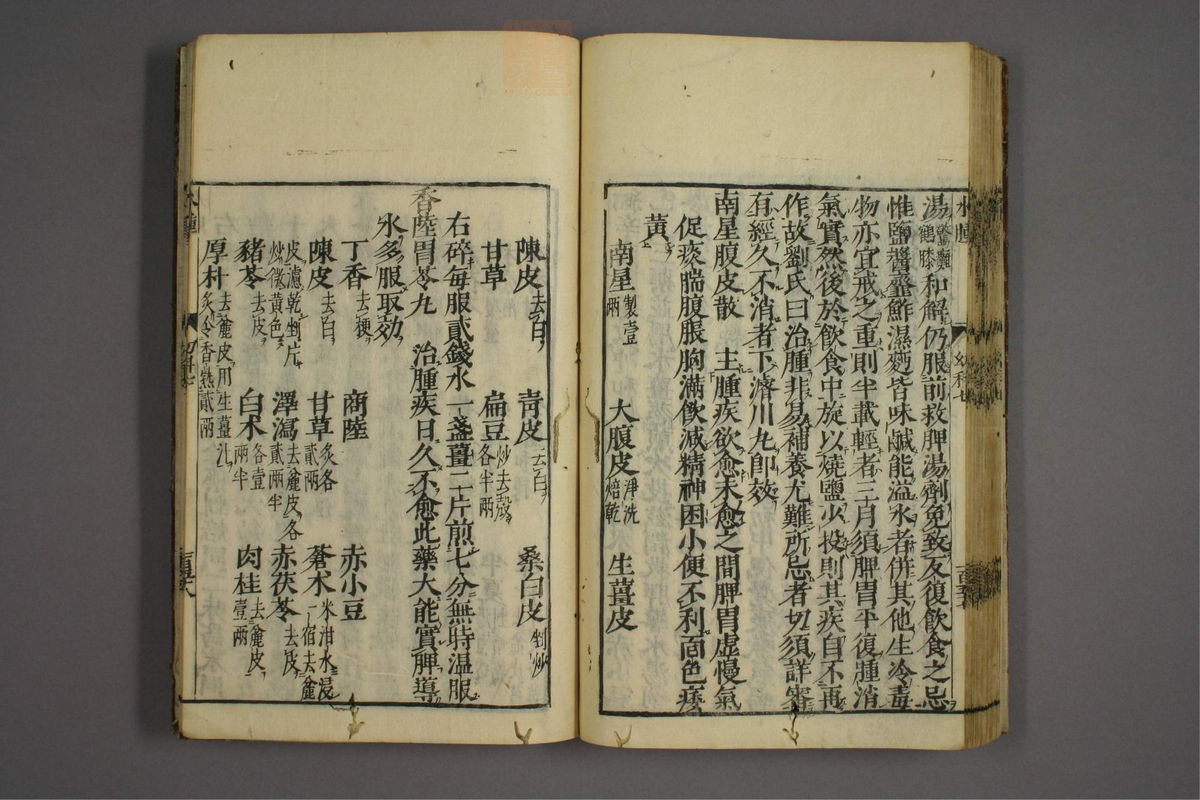 湯驚癱鶴膝和解仍服前救脾湯劑免致反復飲食之忌
惟鹽醬虀鮓濕麪皆味鹹能溢水者併其他生冷毒
物亦宜戒之重則半載輕者三月須脾胃平復腫消
氣實然後於飲食中旋以燒鹽少投則其疾自不再
作故劉氏曰治腫非易補養尤難所忌者切須詳審
有經久不消者下濬川丸卽效
南星腹皮散　主腫疾欲愈未愈之間脾胃虛慢氣
促痰喘腹脹胸滿飲減精神困小便不利面色痿
黃
南星製壹兩　大腹皮淨洗焙乾　生薑皮
陳皮去白　青皮去白　桑白皮剉炒
甘草　扁豆炒去殼各半兩
右碎每服貳錢水一盞薑二片煎七分無時温服
香陸胃苓丸　治腫疾日久不愈此藥大能實脾導
水多服取効
丁香去梗　商陸　赤小豆
陳皮去白　甘草炙各貳兩　蒼术米泔水浸一宿去麄
皮濾乾剉片炒微黃色　澤瀉去麄皮各貳兩半　赤茯苓去皮
豬苓去皮　白术各壹兩半　肉桂去麄皮壹兩
厚朴去麄皮用生薑汁炙令香熟貳兩